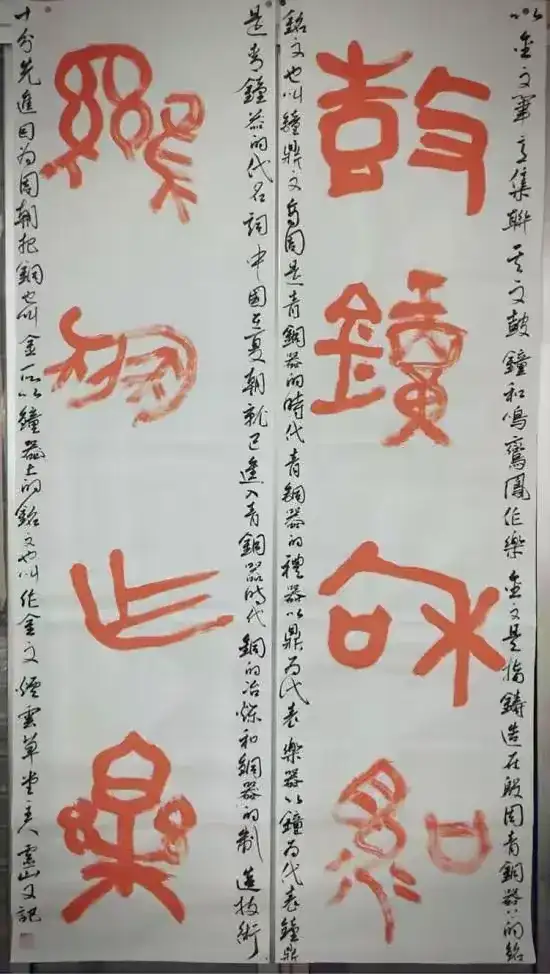 以金文筆意集聯其文鼓鐘和鳴鸞鳳作樂金文是指鑄造在殷周青銅器上的銘
鼓鐘和鳴
銘文也叫鐘鼎文商周是青銅器的時代青銅器的禮器以鼎為代表樂器以鐘為代表鐘鼎
是青鐘器的代名詞中國在夏朝就已進入青銅器時代銅的冶煉和銅器的制造技術
鸞鳳作樂
十分先進因為周朝把銅也叫金所以鐘器上的銘文也叫作金文雲草堂主人靈山又記